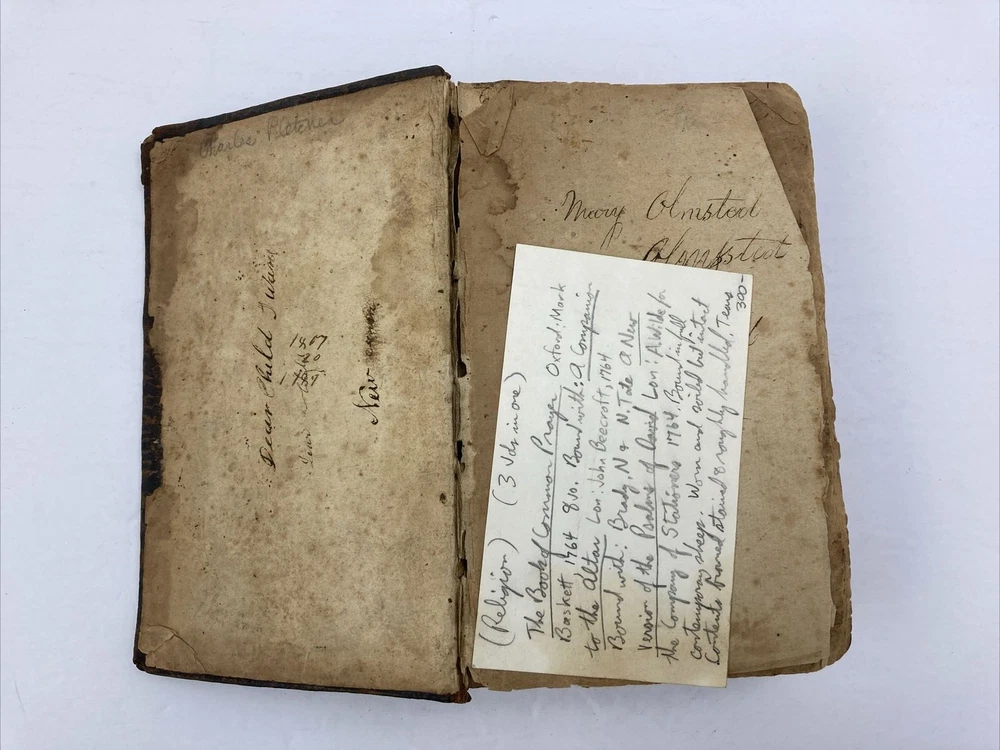 Charles Fletcher
Dear Child
1807
New
Mary Olmsted
Olmpsted
(Religion) (3 Vols in one)
The Book of Common Prayer Oxford: Mark
Baskett 1764 8vo. Bound with: A Companion
to the Altar Lon: John Beecroft, 1764
Bound with: Brady, N & N. Tate A New
Version of the Psalms of David Lon: A Wilde for
the Company of Stationers 1764. Bound in full
contemporary sheep. Worn and soiled but intact
Contents browned stained & roughly handled, Tears
300-